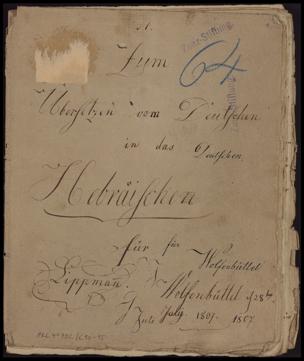 Zunz-Stiftung
64
Zum
Übersetzen vom Deutschen
in das Deutschen
Hebräischen
für für
Wolfenbüttel
Lippman. Wolfenbüttel d 28
July 1807. 1807